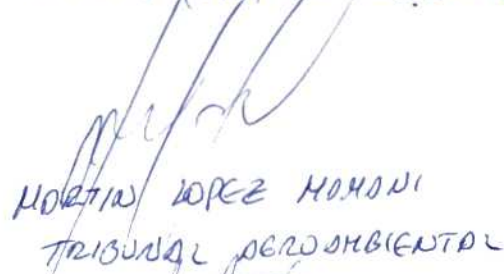 MARTIN LOPEZ MAMANI
TRIBUNAL AGROAMBIENTAL